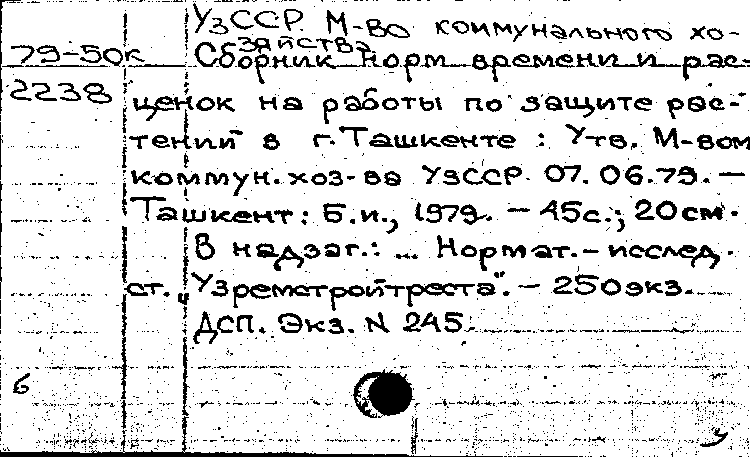 УзССР. М-во коммунального хо-
зяйства
79-50к Сборник норм времени и рас-
2238 ценок на работы по защите рас-
тений в г. Ташкенте : Утв. М-вом
коммун. хоз-ва УзССР 07. 06.79. —
Ташкент : Б.и., 1979. - 45с.; 20см.
В надзаг.: ... Нормат.- исслед.
ст. „Узремстройтреста". - 250экз.
ДСП. Экз. N 245.
6
У